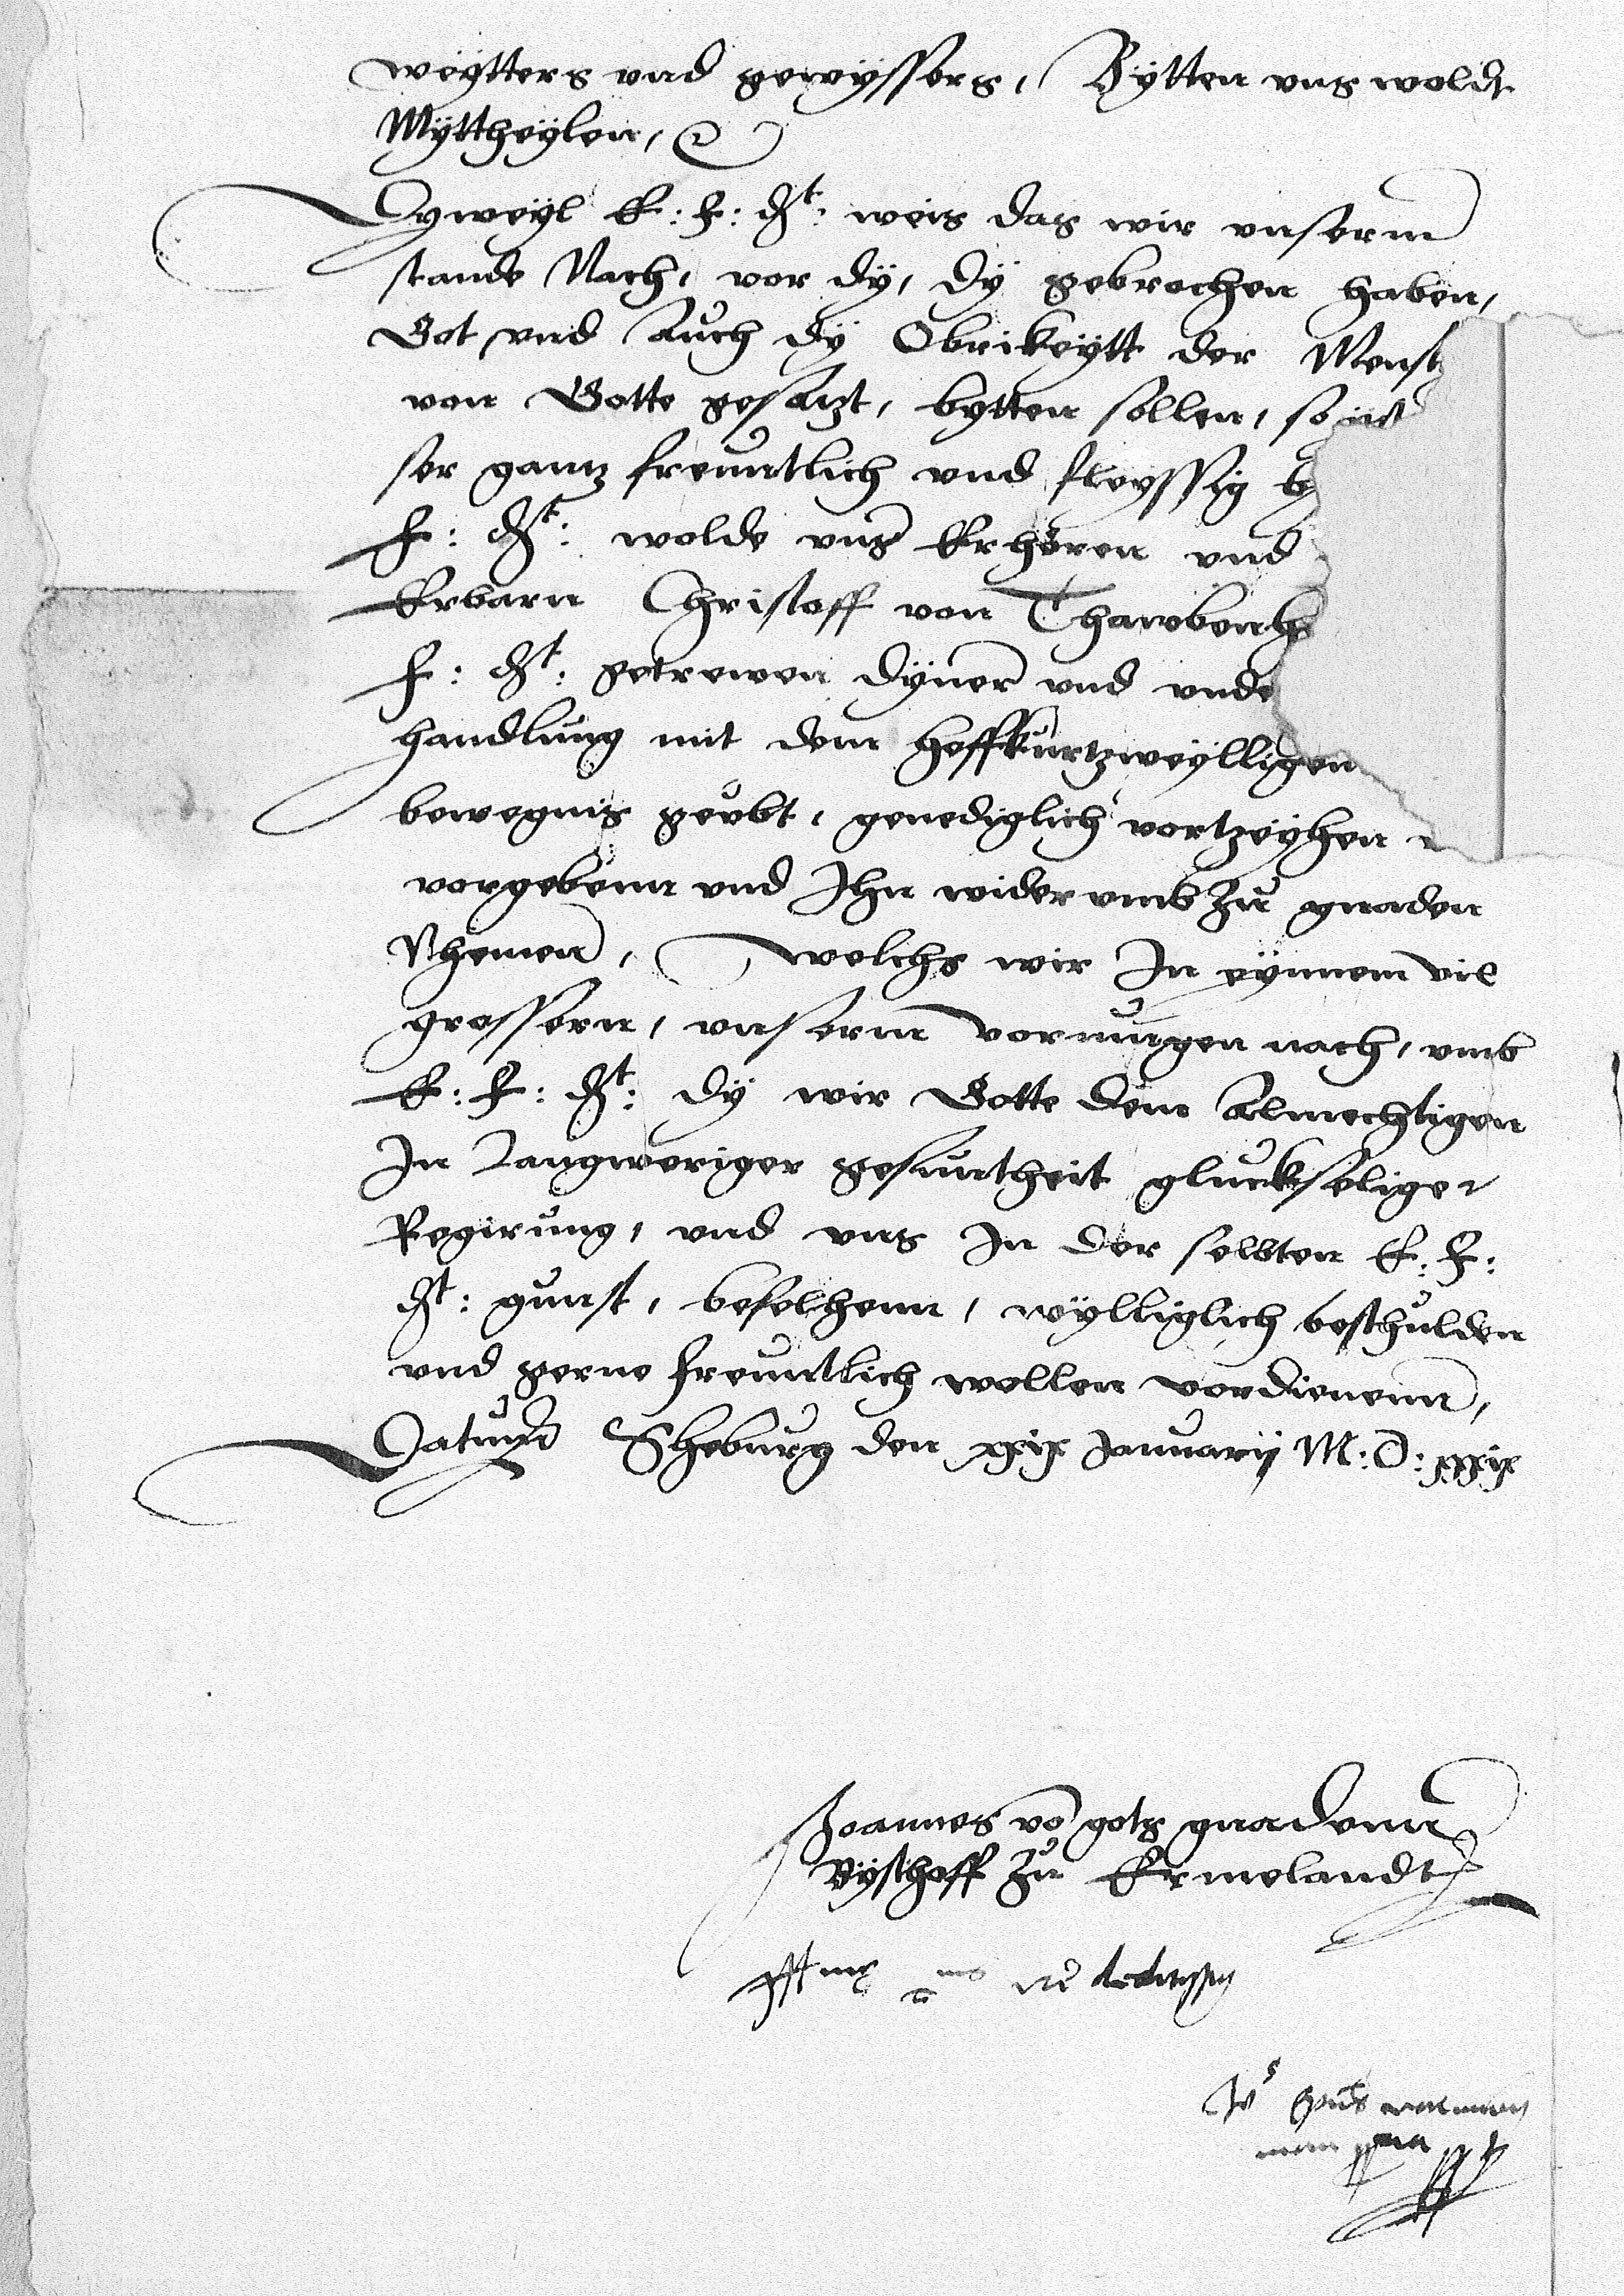 weytters vnd gewyssers, Bytten vns woldt
Myttheylen,
Dyweyl E: F: Dt: weis das wir vnserm
stande Nach, vor dy, dy gebrochen haben,
Got vnd Auch dy Obrikeytt der Mensch
von Gotte gesatzt, bytten sollen, so ist
ser gantz freuntlich vnd fleyssig by
F: Dt: wolde vns Erhören vnd
Erbarn Christoff von Thawbenh
F: Dt: getrewen dyner vnd vnde
handlung mit dem hoffkurtzweylligen
bewegnis geubt, genediglich vortzeyhen
vorgebenn vnd Ihn widervmb zu gnaden
Nhemen, welchs wir In eynnem vil
grossern, vnserm vormugen nach, vmb
E: F: Dt: dy wir Gotte dem Almechtigen
In Langweriger gesuntheit gluckseliger
Regirung, vnd vns In der selbten E: F:
Dt: gunst, befelhenn, wylliglich beschulden
vnd gerne freuntlich wollen vordienenn,
Datum Sheburg den xxix January M: D: xxxix
Joannes vo gots gnadenn
Byschoff zu Ermelandt